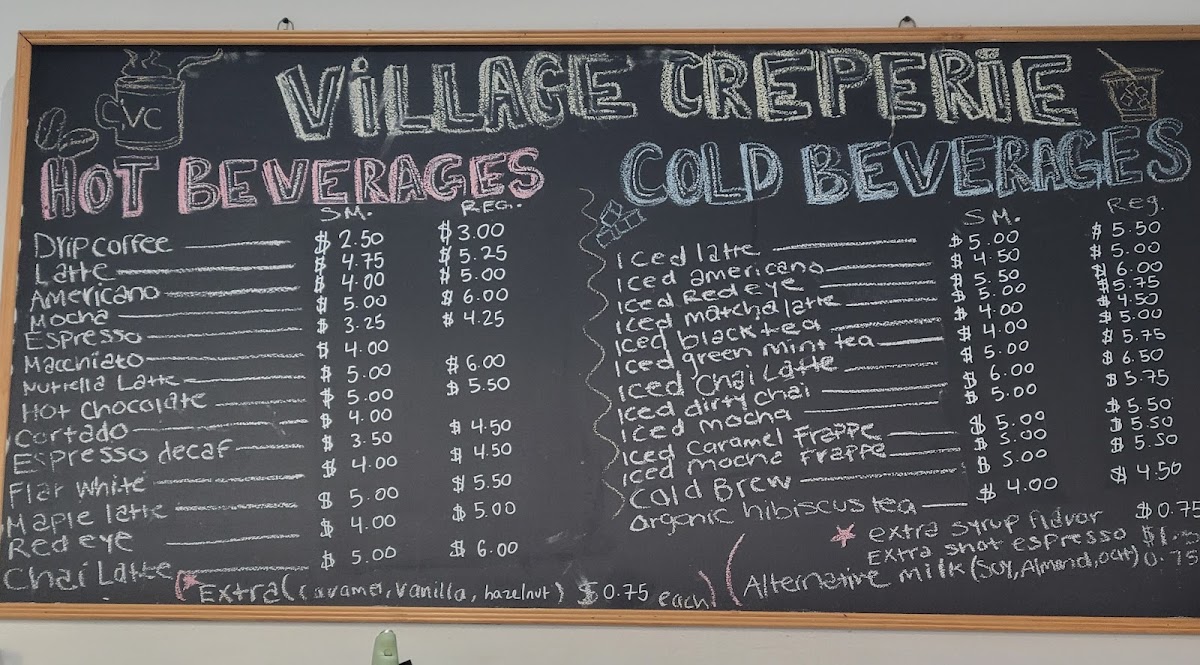 CVC
VILLAGE CREPERIE
HOT BEVERAGES
SM. REG.
Drip coffee $2.50 $3.00
Latte $4.75 $5.25
Americano $4.00 $5.00
Mocha $5.00 $6.00
Espresso $3.25 $4.25
Macchiato $4.00
Nutella Latte $5.00 $6.00
Hot Chocolate $5.00 $5.50
Cortado $4.00
Espresso decaf $3.50 $4.50
Flat white $4.00 $4.50
Maple latte $5.00 $5.50
Red eye $4.00 $5.00
Chai Latte $5.00 $6.00
Extra (caramel, vanilla, hazelnut) $0.75 each)
COLD BEVERAGES
SM. Reg.
Iced latte $5.00 $5.50
Iced americano $4.50 $5.00
Iced Red eye $5.50 $6.00
Iced matcha latte $5.00 $5.75
Iced black tea $4.00 $4.50
Iced green mint tea $4.00 $5.00
Iced Chai Latte $5.00 $5.75
Iced dirty chai $6.00 $6.50
Iced mocha $5.00 $5.75
Iced Caramel Frappe $5.00 $5.50
Iced mocha Frappe $5.00 $5.50
Cold Brew $5.00 $5.50
Organic hibiscus tea $4.00 $4.50
extra syrup flavor $0.75
Extra shot espresso
Alternative milk (Soy, Almond, oat) 0.75